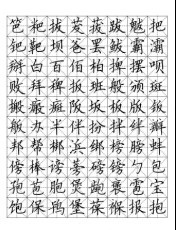 笆粑拔茇菝跋魃把
钯靶坝爸罢鲅霸灞
掰白百佰柏捭摆呗
败拜稗扳班般颁斑
搬瘢癍阪坂板版钣
舨办半伴扮拌绊瓣
邦帮梆浜绑榜膀蚌
傍棒谤蒡磅镑勹包
孢苞胞煲龅褒雹宝
饱保鸨堡葆褓报抱